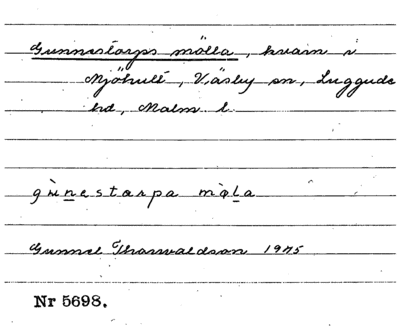 Gunnestorps mölla, kvarn i
Mjöhult, Väsby sn, Luggude
hd, Malm. l.
gùnestarpa mø̀la
Gunnel Thorvaldson 1975
Nr 5698.